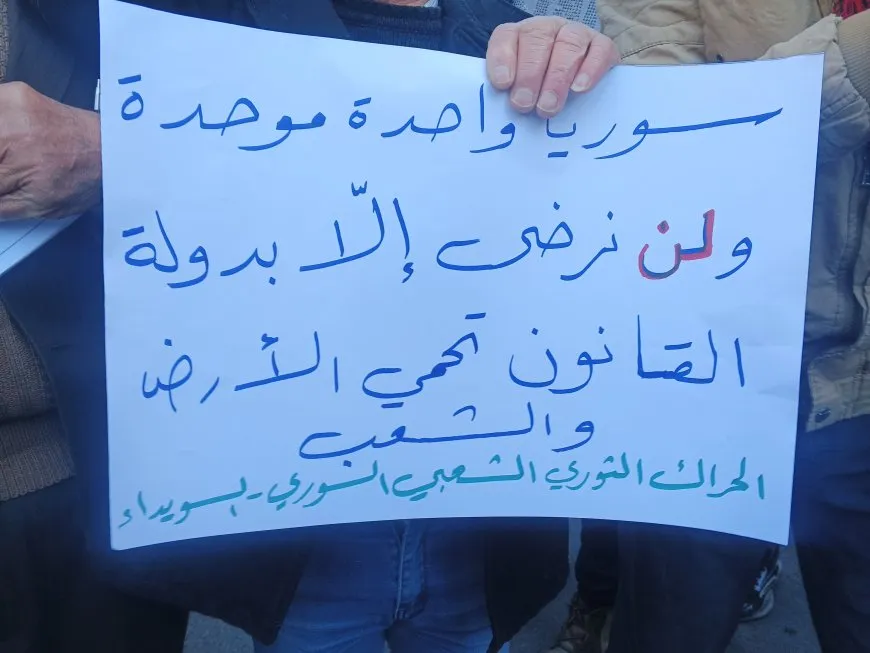 سوريا واحدة موحدة
ولن نرضى إلّا بدولة
القانون تحمي الأرض
والشعب
الحراك الثوري الشعبي السوري - السويداء